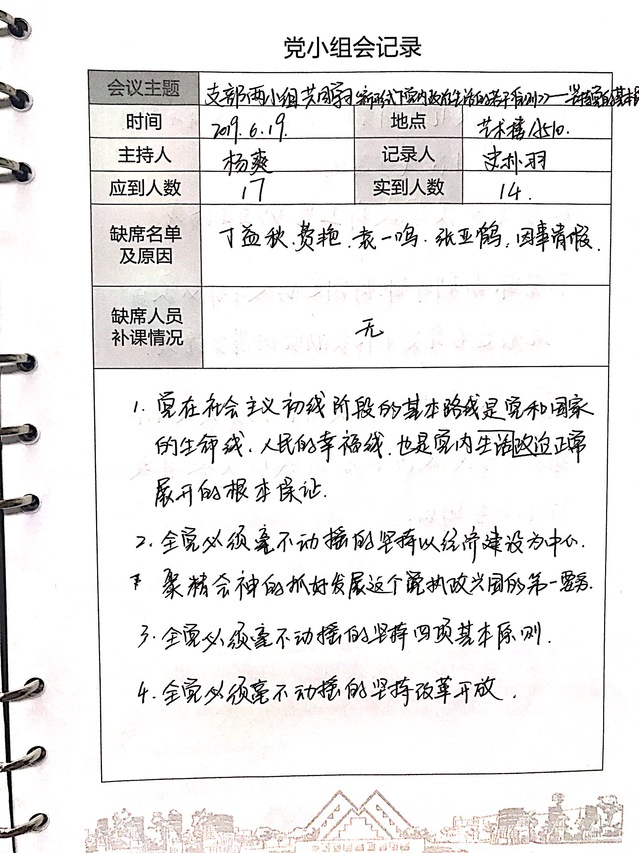 党小组会记录
会议主题 支部两小组共同学习《新形式下党内政治生活的若干准则》——坚持党的基本
时间 2019.6.19. 地点 艺术楼A510.
主持人 杨爽 记录人 史朴羽
应到人数 17 实到人数 14.
缺席名单
及原因 丁益秋.费艳.袁一鸣.张亚鹤,因事请假.
缺席人员
补课情况 无
1. 党在社会主义初级阶段的基本路线是党和国家
的生命线.人民的幸福线.也是党内生活政治正常
展开的根本保证.
2. 全党必须毫不动摇的坚持以经济建设为中心.
聚精会神的抓好发展这个党执政兴国的第一要务.
3. 全党必须毫不动摇的坚持四项基本原则.
4. 全党必须毫不动摇的坚持改革开放.